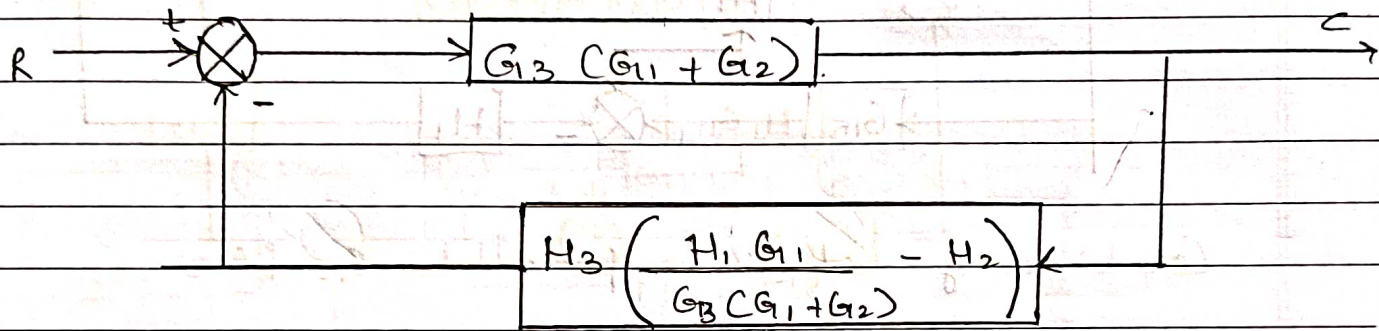 R + G3 (G1 + G2) C
-
H3 ( H1 G1 / G3 (G1 + G2) - H2 )